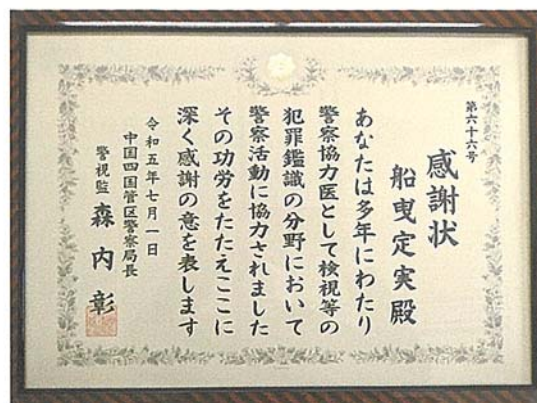 第六十六号
感謝状
船曳定実殿
あなたは多年にわたり
警察協力医として検視等の
犯罪鑑識の分野において
警察活動に協力されました
その功労をたたえここに
深く感謝の意を表します
令和五年七月一日
中国四国管区警察局長
警視監 森内彰